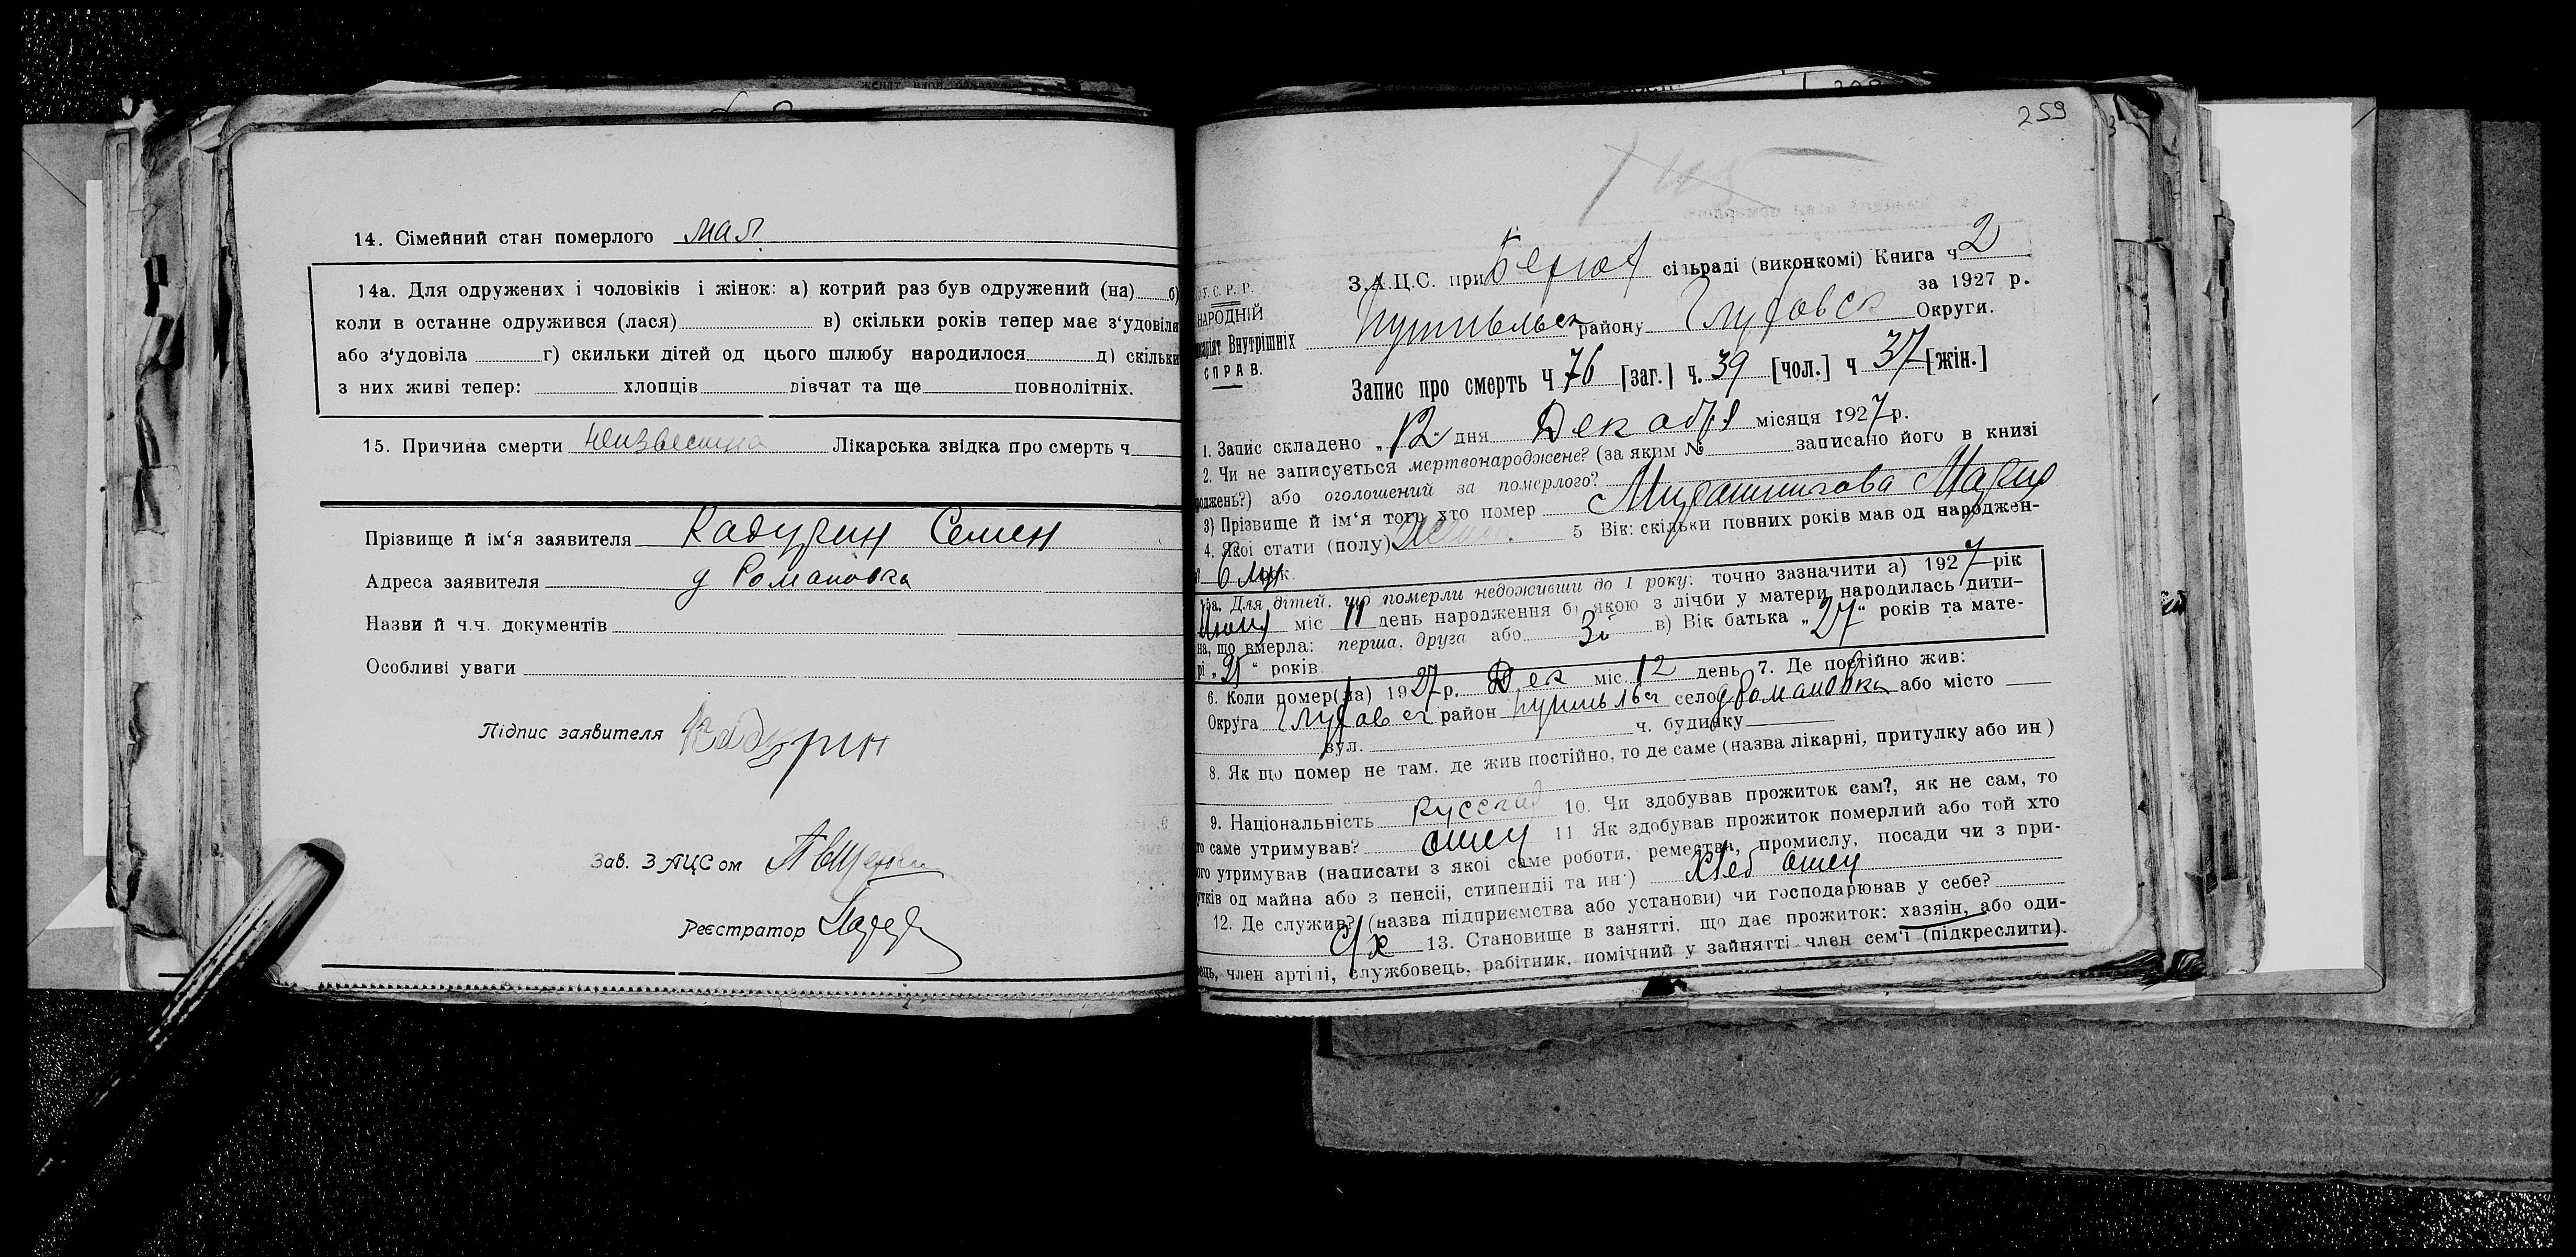 14. Сімейний стан померлого мал
14а. Для одружених і чоловіків і жінок: а) котрий раз був одружений (на) б)
коли в останне одружився (лася) в) скільки років тепер має з'удовіла
або з'удовіла г) скильки дітей од цього шлюбу народилося д) скільки
з них живі тепер: хлопців дівчат та ще повнолітніх.
15. Причина смерти Неизвестна Лікарська звідка про смерть ч
Прізвище й ім'я заявителя Кадурин Семен
Адреса заявителя д Романовка
Назви й ч.ч. документів
Особливі уваги
Підпис заявителя Кадурин
Зав. ЗАЦСом
Реєстратор
259
З.А.Ц.С. при сільраді (виконкомі) Книга ч 2
У.С.Р.Р. за 1927 р.
НАРОДНІЙ Путивльск району Глуховск Округи.
Внутрішніх
СПРАВ.
Запис про смерть Ч 76 [заг.] ч. 39 [чол.] ч 37 [жін.]
1. Запис складено „12" дня Декабря місяця 1927 р.
2. Чи не записується мертвонароджене? (за яким № записано його в книзі
роджень?) або оголошений за померлого?
3) Прізвище й ім'я того хто помер Мария
4. Якої стати (полу) Жен. 5 Вік: скільки повних років мав од народжен-
6 м
5а. Для дітей, що померли недоживши до 1 року: точно зазначити а) 1927 рік
міс 11 день народження б) якою з лічби у матери народилась дити-
на, що вмерла: перша, друга або 3 в) Вік батька „27" років та мате-
рі „25" років
6. Коли помер(ла) 1927 р. Дек міс. 12 день 7. Де постійно жив:
Округа Глуховск район Путивльск село д Романовка або місто
вул. ч. будинку
8. Як що помер не там, де жив постійно, то де саме (назва лікарні, притулку або ин)
9. Національність Русская 10. Чи здобував прожиток сам?, як не сам, то
то саме утримував? отец 11 Як здобував прожиток померлий або той хто
ого утримував (написати з якої саме роботи, ремества, промислу, посади чи з при-
утків од майна або з пенсії, стипендії та ин.) Хлеб отец
12. Де служив? (назва підприємства або установи) чи господарював у себе?
С/х 13. Становище в занятті, що дає прожиток: хазяін, або оди-
ець, член артілі, службовець, рабітник, помічний у зайнятті член сем'ї (підкреслити).